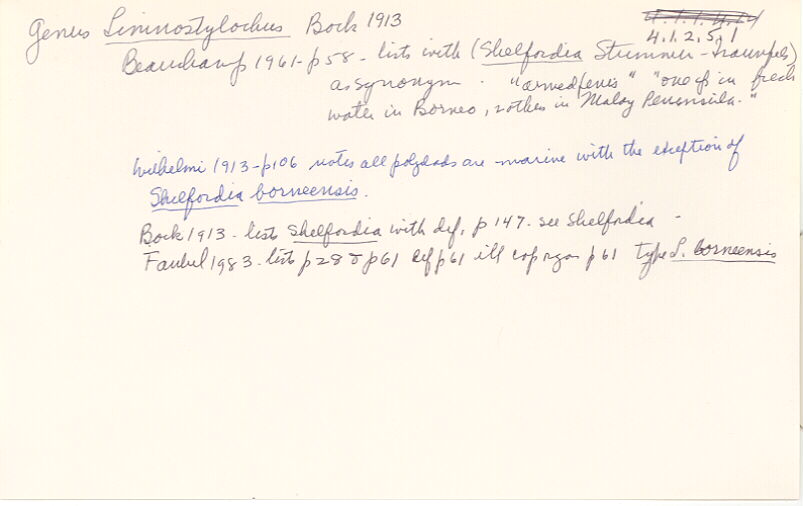 Genus Limnostylochus Bock 1913
4.1.1.4.14
4.1.2.5.1
Beauchamp 1961 - p58 - lists with (Shelfordia Stummer-Traunfels)
as synonym. "armed penis" "one sp in fresh
water in Borneo, others in Malay Peninsula."
Wilhelmi 1913 - p106 notes all polyclads are marine with the exception of
Shelfordia borneensis.
Bock 1913 - lists Shelfordia with def, p 147. see Shelfordia -
Faubel 1983 - lists p28 & p61 def p61 ill cop organ p61 type L. borneensis